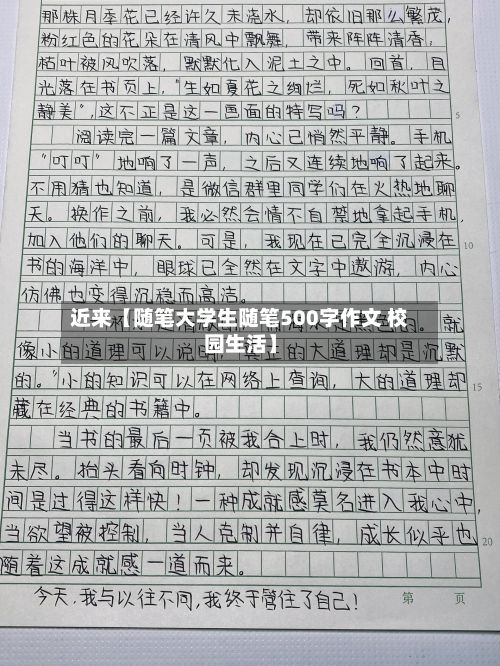 那株月季花已经许久未浇水，却依旧那么繁茂，
粉红色的花朵在清风中飘舞，带来阵阵清香，
枯叶被风吹落，默默化入泥土之中。回首，目
光落在书页上，"生如夏花之绚烂，死如秋叶之
静美"，这不正是这一画面的特写吗？
5
阅读完一篇文章，内心已悄然平静。手机
"叮叮"地响了一声，之后又连续地响了起来。
不用猜也知道，是微信群里同学们在火热地聊
天。换作之前，我必然会情不自禁地拿起手机，
加入他们的聊天。可是，我现在已完全沉浸在
10
书的海洋中，眼球已全然在文字中遨游，内心
仿佛也变得沉稳而高洁。
近来【随笔大学生随笔500字作文 校
园生活】
就
像小的道理可以说明，的大道理却是沉默
的。"小的知识可以在网络上查询，大的道理却
15
藏在经典的书籍中。
当书的最后一页被我合上时，我仍然意犹
未尽。抬头看向时钟，却发现沉浸在书本中时
间是过得这样快！一种成就感莫名进入我心中，
当欲望被控制，当人克制并自律，成长似乎也
20
随着这成就感一道而来。
今天，我与以往不同，我终于管住了自己！
第 页